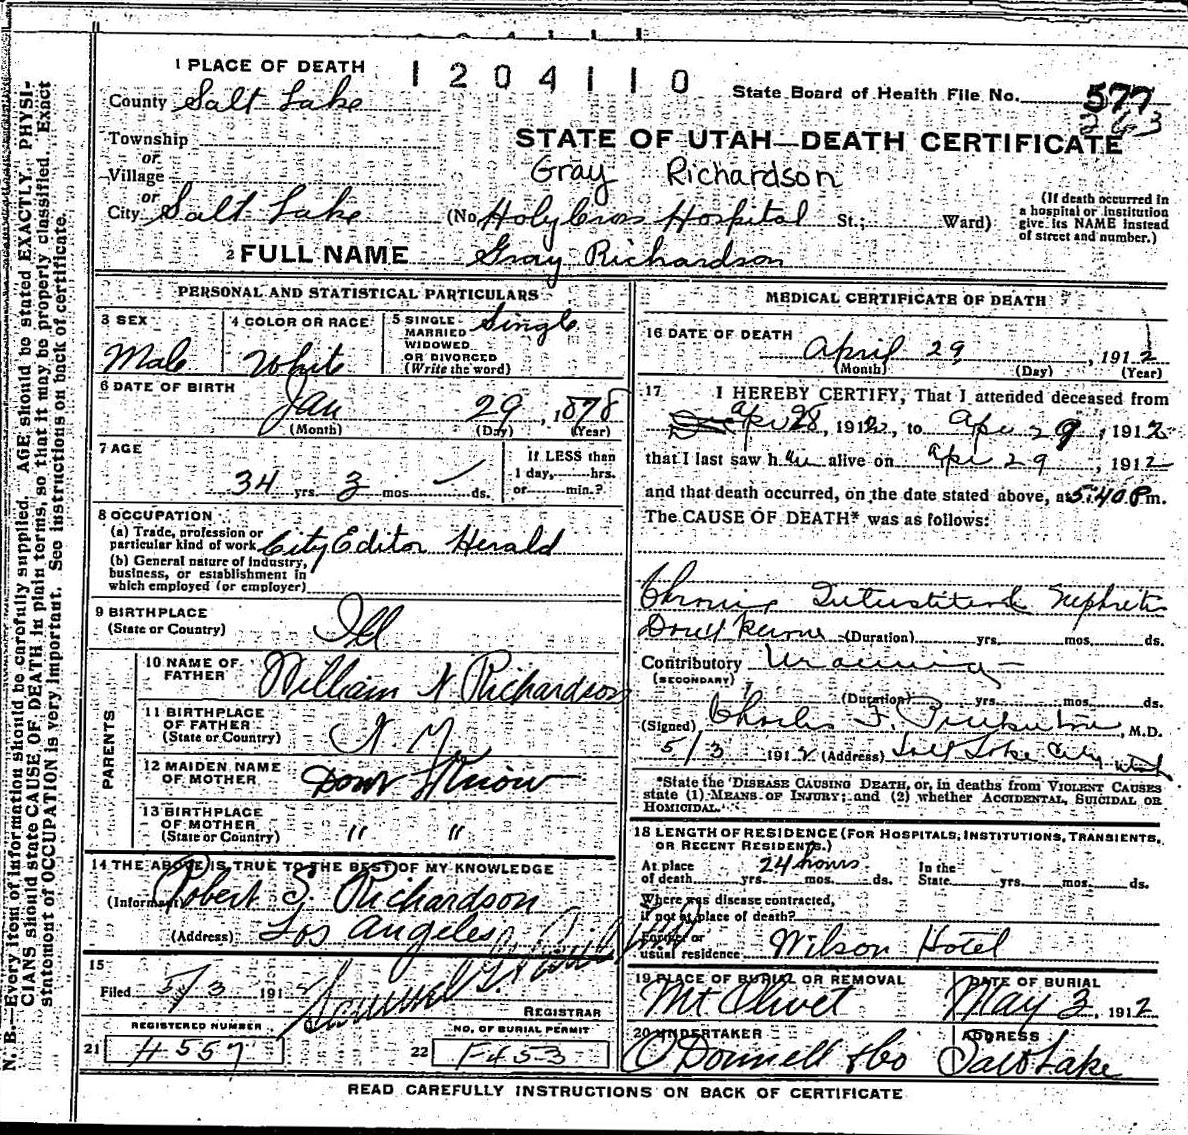 1 PLACE OF DEATH
1204110
County Salt Lake
State Board of Health File No. 577
Township
or
Village
or
City Salt Lake
STATE OF UTAH—DEATH CERTIFICATE
Gray Richardson
(No. Holy Cross Hospital St.; Ward)
(If death occurred in a hospital or institution give its NAME instead of street and number.)
2 FULL NAME Gray Richardson
PERSONAL AND STATISTICAL PARTICULARS
3 SEX
Male
4 COLOR OR RACE
White
5 SINGLE MARRIED WIDOWED OR DIVORCED (Write the word)
Single
6 DATE OF BIRTH
Jan 29, 1878
(Month) (Day) (Year)
7 AGE
34 yrs. 3 mos. ds.
If LESS than 1 day, hrs. or min.?
8 OCCUPATION
(a) Trade, profession or particular kind of work City Editor Herald
(b) General nature of industry, business, or establishment in which employed (or employer)
9 BIRTHPLACE
(State or Country)
Ill
PARENTS
10 NAME OF FATHER William N Richardson
11 BIRTHPLACE OF FATHER (State or Country) N. Y.
12 MAIDEN NAME OF MOTHER Dont Know
13 BIRTHPLACE OF MOTHER (State or Country) " "
14 THE ABOVE IS TRUE TO THE BEST OF MY KNOWLEDGE
(Informant) Robert S. Richardson
(Address) Los Angeles
15
Filed 5/3 1912
REGISTRAR
REGISTERED NUMBER
21 H 557
NO. OF BURIAL PERMIT
22 F453
MEDICAL CERTIFICATE OF DEATH
16 DATE OF DEATH
April 29, 1912
(Month) (Day) (Year)
17 I HEREBY CERTIFY, That I attended deceased from
Apr 28, 1912, to Apr 29, 1912
that I last saw him alive on Apr 29, 1912
and that death occurred, on the date stated above, at 5:40 P.m.
The CAUSE OF DEATH* was as follows:
Chronic Interstitial Nephritis
Dont Know (Duration) yrs. mos. ds.
Contributory Uraemia
(SECONDARY)
(Duration) yrs. mos. ds.
(Signed) Charles F. Pinkerton, M.D.
5/3 1912 (Address) Salt Lake City Utah
*State the DISEASE CAUSING DEATH, or, in deaths from VIOLENT CAUSES
state (1) MEANS OF INJURY; and (2) whether ACCIDENTAL, SUICIDAL OR
HOMICIDAL.
18 LENGTH OF RESIDENCE (FOR HOSPITALS, INSTITUTIONS, TRANSIENTS, OR RECENT RESIDENTS.)
At place of death 24 hours yrs. mos. ds. In the State yrs. mos. ds.
Where was disease contracted,
if not at place of death?
Former or usual residence Wilson Hotel
19 PLACE OF BURIAL OR REMOVAL
Mt Olivet
DATE OF BURIAL
May 3, 1912
20 UNDERTAKER
O'Donnell & Co
ADDRESS
Salt Lake
READ CAREFULLY INSTRUCTIONS ON BACK OF CERTIFICATE
N. B.—Every item of information should be carefully supplied. AGE should be stated EXACTLY. PHYSI-
CIANS should state CAUSE OF DEATH in plain terms, so that it may be properly classified. Exact
statement of OCCUPATION is very important. See instructions on back of certificate.